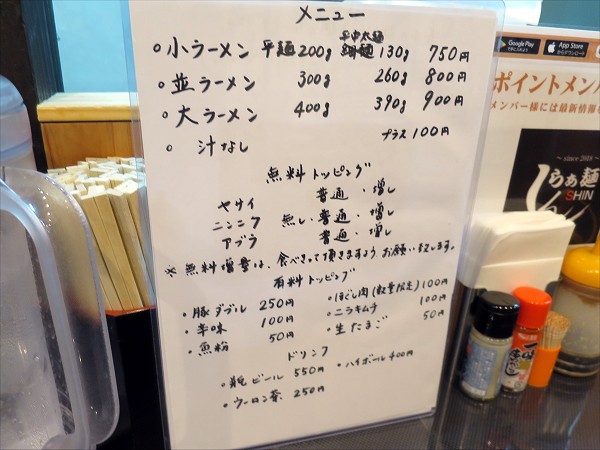 メニュー
平中太麺
○小ラーメン 平麺200g 細麺130g 750円
○並ラーメン 300g 260g 800円
○大ラーメン 400g 390g 900円
○ 汁なし プラス100円
無料トッピング
ヤサイ 普通・増し
ニンニク 無し・普通・増し
アブラ 普通・増し
※無料増量は、食べきって頂きますようお願い致します。
有料トッピング
・豚ダブル 250円
・辛味 100円
・魚粉 50円
・ほぐし肉(数量限定)100円
・ニラキムチ 100円
・生たまご 50円
ドリンク
・瓶ビール 550円
・ハイボール 400円
・ウーロン茶 250円
Google Play
App Store
ポイントメンバ
メンバー様には最新情報
~ since 2016 ~
らぁ麺
SHIN
一味